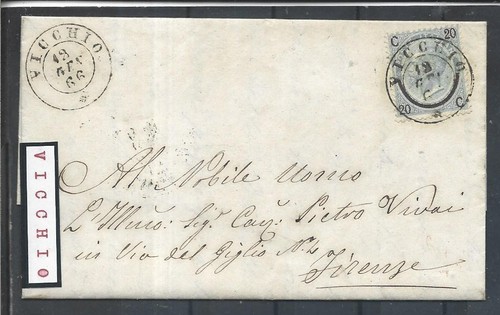 VICCHIO
12
GEN
66
C 20
VICCHIO
12
GEN
20 C
VICCHIO
Al Nobile Uomo
L'Illmo: Sigr. Cav: Pietro Vivai
in Via del Giglio No.
Firenze